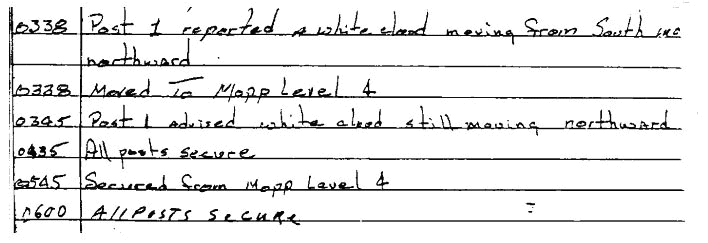 0338 Post 1 reported a white cloud moving from South
northward
0338 Moved To Mopp Level 4
0345 Post 1 advised white cloud still moving northward
0435 All posts secure
0545 Secured from Mopp Level 4
0600 All Posts Secure